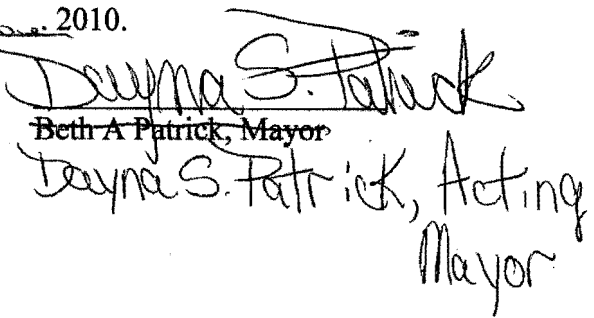 2010.
Dayna S. Patrick
Beth A Patrick, Mayor
Dayna S. Patrick, Acting
Mayor